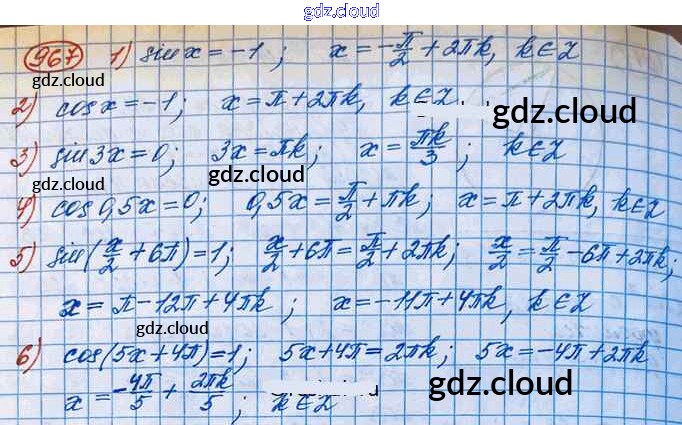 gdz.cloud
967 1) sin x = -1; x = -π/2 + 2πk, k∈Z
gdz.cloud
2) cos x = -1; x = π + 2πk, k∈Z.
gdz.cloud
3) sin 3x = 0; 3x = πk; x = πk/3; k∈Z
gdz.cloud gdz.cloud
4) cos 0,5x = 0; 0,5x = π/2 + πk; x = π + 2πk, k∈Z
5) sin(x/2 + 6π) = 1; x/2 + 6π = π/2 + 2πk; x/2 = π/2 - 6π + 2πk;
x = π - 12π + 4πk; x = -11π + 4πk, k∈Z
gdz.cloud
6) cos(5x + 4π) = 1; 5x + 4π = 2πk; 5x = -4π + 2πk
x = -4π/5 + 2πk/5; k∈Z
gdz.cloud